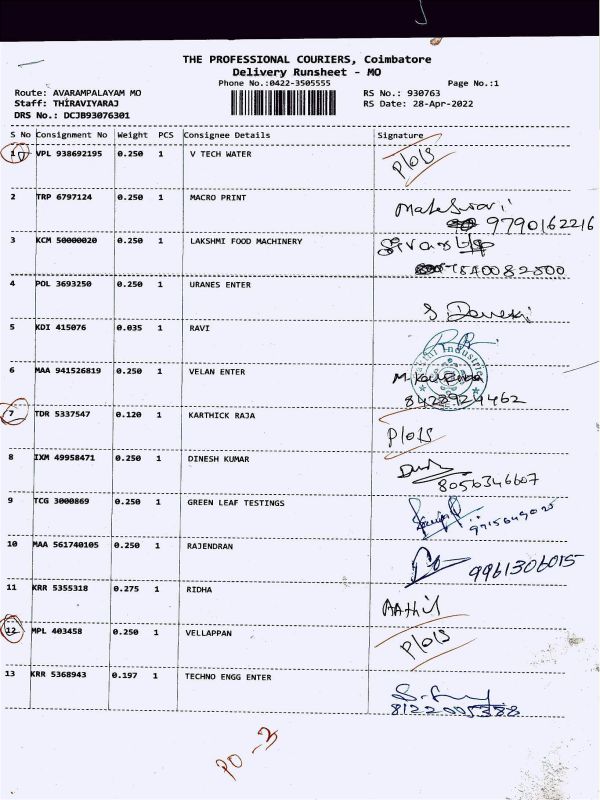 THE PROFESSIONAL COURIERS, Coimbatore
Delivery Runsheet - MO
Phone No.:0422-3505555 Page No.:1
Route: AVARAMPALAYAM MO RS No.: 930763
Staff: THIRAVIYARAJ RS Date: 28-Apr-2022
DRS No.: DCJB93076301
S No Consignment No Weight PCS Consignee Details Signature
1 VPL 938692195 0.250 1 V TECH WATER
2 TRP 6797124 0.250 1 MACRO PRINT
9790162216
3 KCM 50000020 0.250 1 LAKSHMI FOOD MACHINERY
4 POL 3693250 0.250 1 URANES ENTER
5 KDI 415076 0.035 1 RAVI
6 MAA 941526819 0.250 1 VELAN ENTER
8428924462
7 TDR 5337547 0.120 1 KARTHICK RAJA
8 IXM 49958471 0.250 1 DINESH KUMAR
8056346607
9 TCG 3000869 0.250 1 GREEN LEAF TESTINGS
10 MAA 561740105 0.250 1 RAJENDRAN
9961306015
11 KRR 5355318 0.275 1 RIDHA
AAthil
12 MPL 403458 0.250 1 VELLAPPAN
13 KRR 5368943 0.197 1 TECHNO ENGG ENTER
8122005388
PO - 3